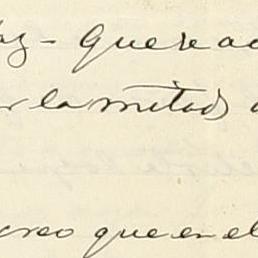 az - que se a
r la mitad
creo que en el